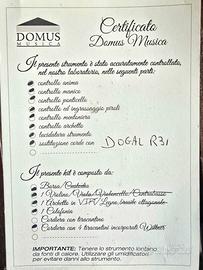 DOMUS
MUSICA
Certificato
Domus Musica
Il presente strumento è stato accuratamente controllato,
nel nostro laboratorio, nelle seguenti parti:
controllo anima
controllo manico
controllo ponticello
controllo ed ingrassaggio piroli
controllo montaggio
controllo archetto
lucidatura strumento
sostituzione corde con DOGAL R31
Il presente kit è composto da:
1 Borsa/Custodia
1 Violino/Viola/Violoncello/Contrabbasso
1 Archetto in legno, brasile ottagonale
1 Colofonia
Cordiera con tiracantino
Cordiera con 4 tiracantini incorporati Wittner
IMPORTANTE: Tenere lo strumento lontano
da fonti di calore. Utilizzare gli umidificatori
per evitare danni allo strumento.